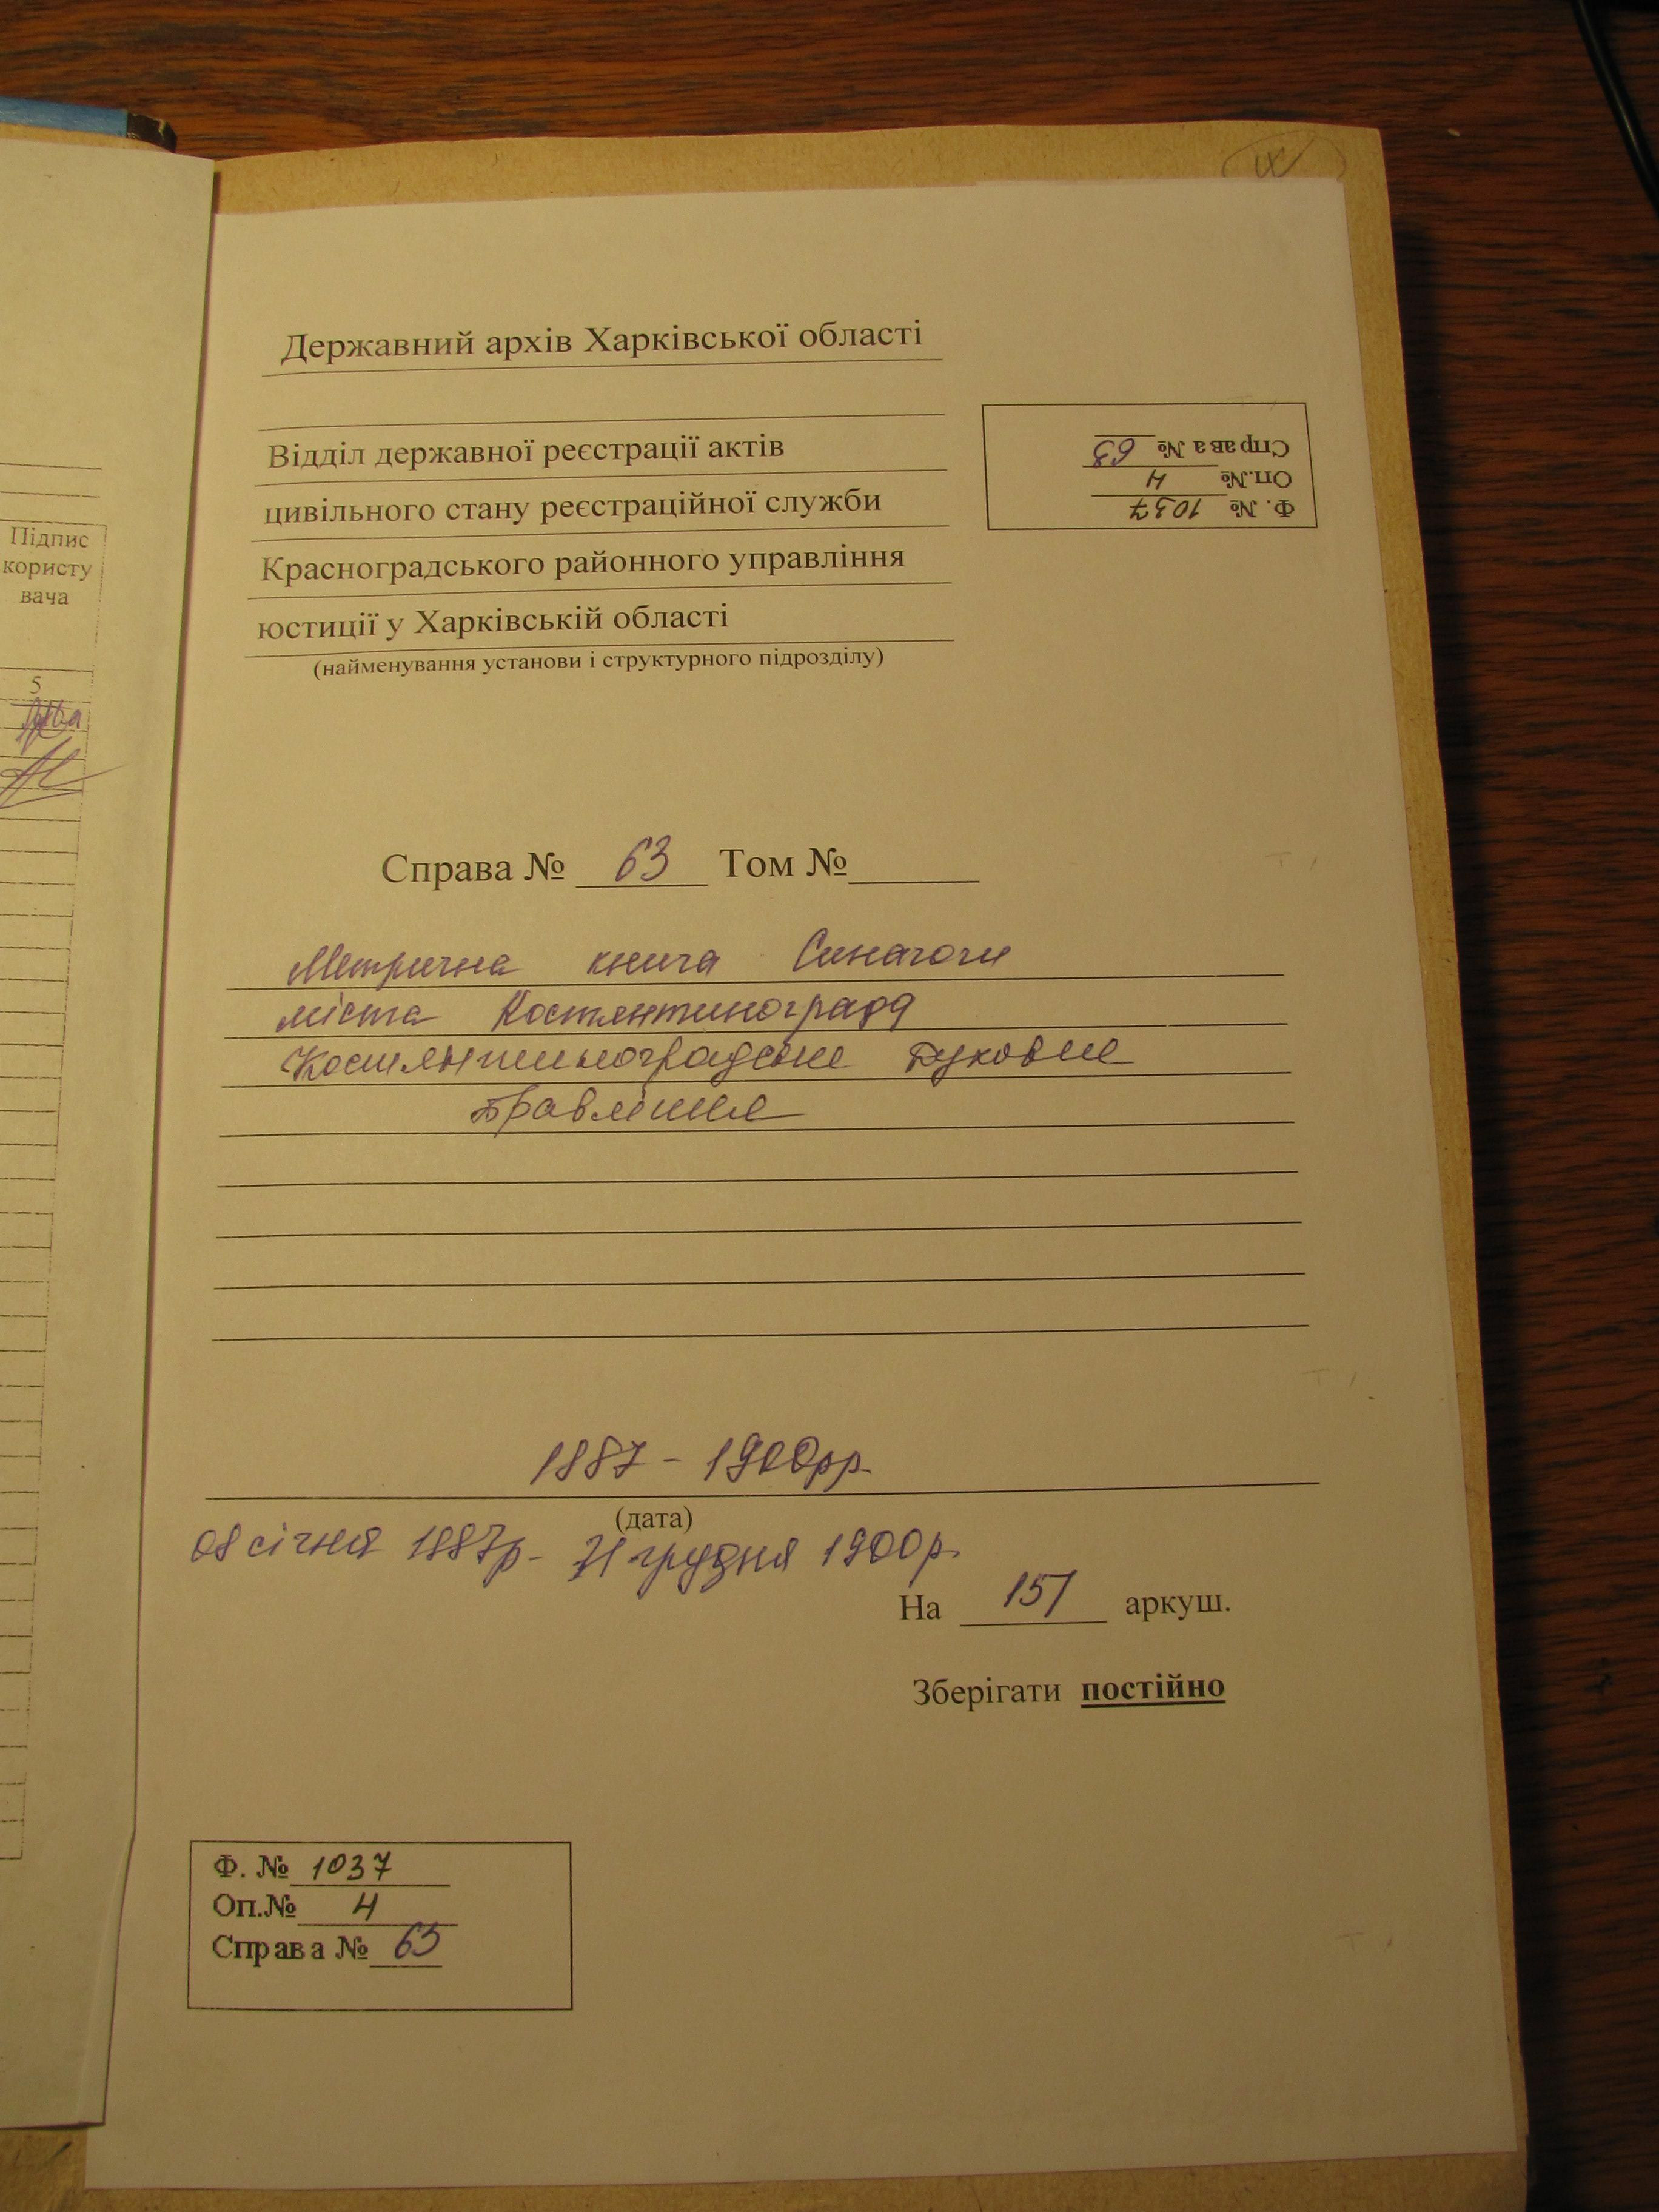 Підпис
користу
вача
5
Державний архів Харківської області
Відділ державної реєстрації актів
цивільного стану реєстраційної служби
Красноградського районного управління
юстиції у Харківській області
(найменування установи і структурного підрозділу)
Ф. № 1037
Оп.№ 4
Справа № 63
Справа № 63 Том №
Метрична книга Синагоги
міста Костянтинограда
Костянтиноградське Духовне
Правління
1887 - 1900рр.
(дата)
01 січня 1887р - 31 грудня 1900р.
На 151 аркуш.
Зберігати постійно
Ф. № 1037
Оп.№ 4
Справа № 63